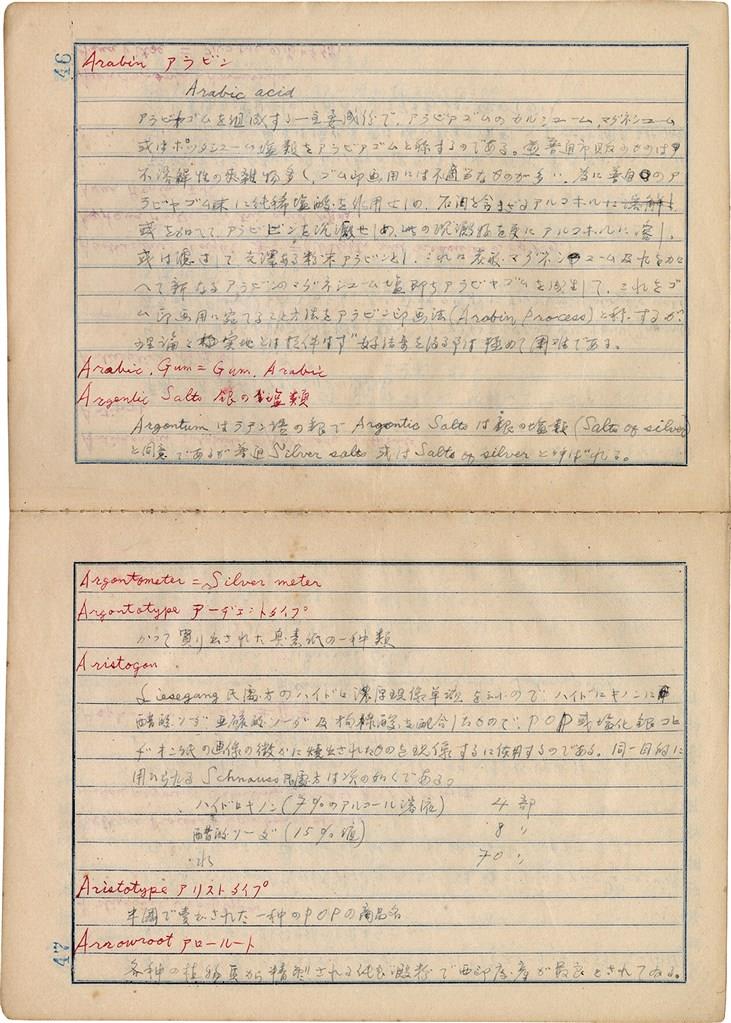 46
Arabin アラビン
Arabic acid
アラビヤゴムを組成する主要成分で、アラビアゴムのカルシューム、マグネシューム
或はポッタシューム塩類をアラビアゴムと称するのである。普通市販のものは
不溶解性の夾雑物多く、ゴム印画用には不適当なものが多い。為に普通のア
ラビヤゴム末に純稀塩酸を作用せしめ、アルコホルに
或は加へて、アラビンを沈澱せしめ、此の沈澱物を更にアルコホルに溶し、
或は濾過して粉末アラビンとし、これに炭酸マグネシューム及
へて新なるアラビンのマグネシューム塩即ちアラビヤゴムを成生して、これをゴ
ム印画用に宛てること方法をアラビン印画法(Arabin Process)と称するが、
理論と実地とは伴はず好結果を得る事は極めて困難である。
Arabic, Gum = Gum, Arabic
Argentic Salts 銀の塩類
Argentum はラテン語の銀で Argentic Salts は銀の塩類 (Salts of silver)
と同意であるが普通 Silver salts 或は Salts of silver と呼ばれる。
Argentometer = Silver meter
Argentotype アーヂェントタイプ
かつて売り出された臭素紙の一種類
Aristogen
Liesegang氏処方のハイドロ 現像単液 ハイドロキノンに
醋酸ソーダ 亜硫酸ソーダ及枸櫞酸を配合したもので、POP或塩化銀コロ
ヂオン紙の画像の微かに焼出されたものを現像するに使用するのである。同一目的に
用ひらるる Schnauss氏処方は次の如くである。
ハイドロキノン(7%のアルコール溶液) 4部
醋酸ソーダ (15%) 8〃
水 70〃
Aristotype アリストタイプ
米国で売出された一種のPOPの商品名
Arrowroot アロールート
各種の植物 から精製される純良澱粉で西印度産が最良とされてゐる。
47